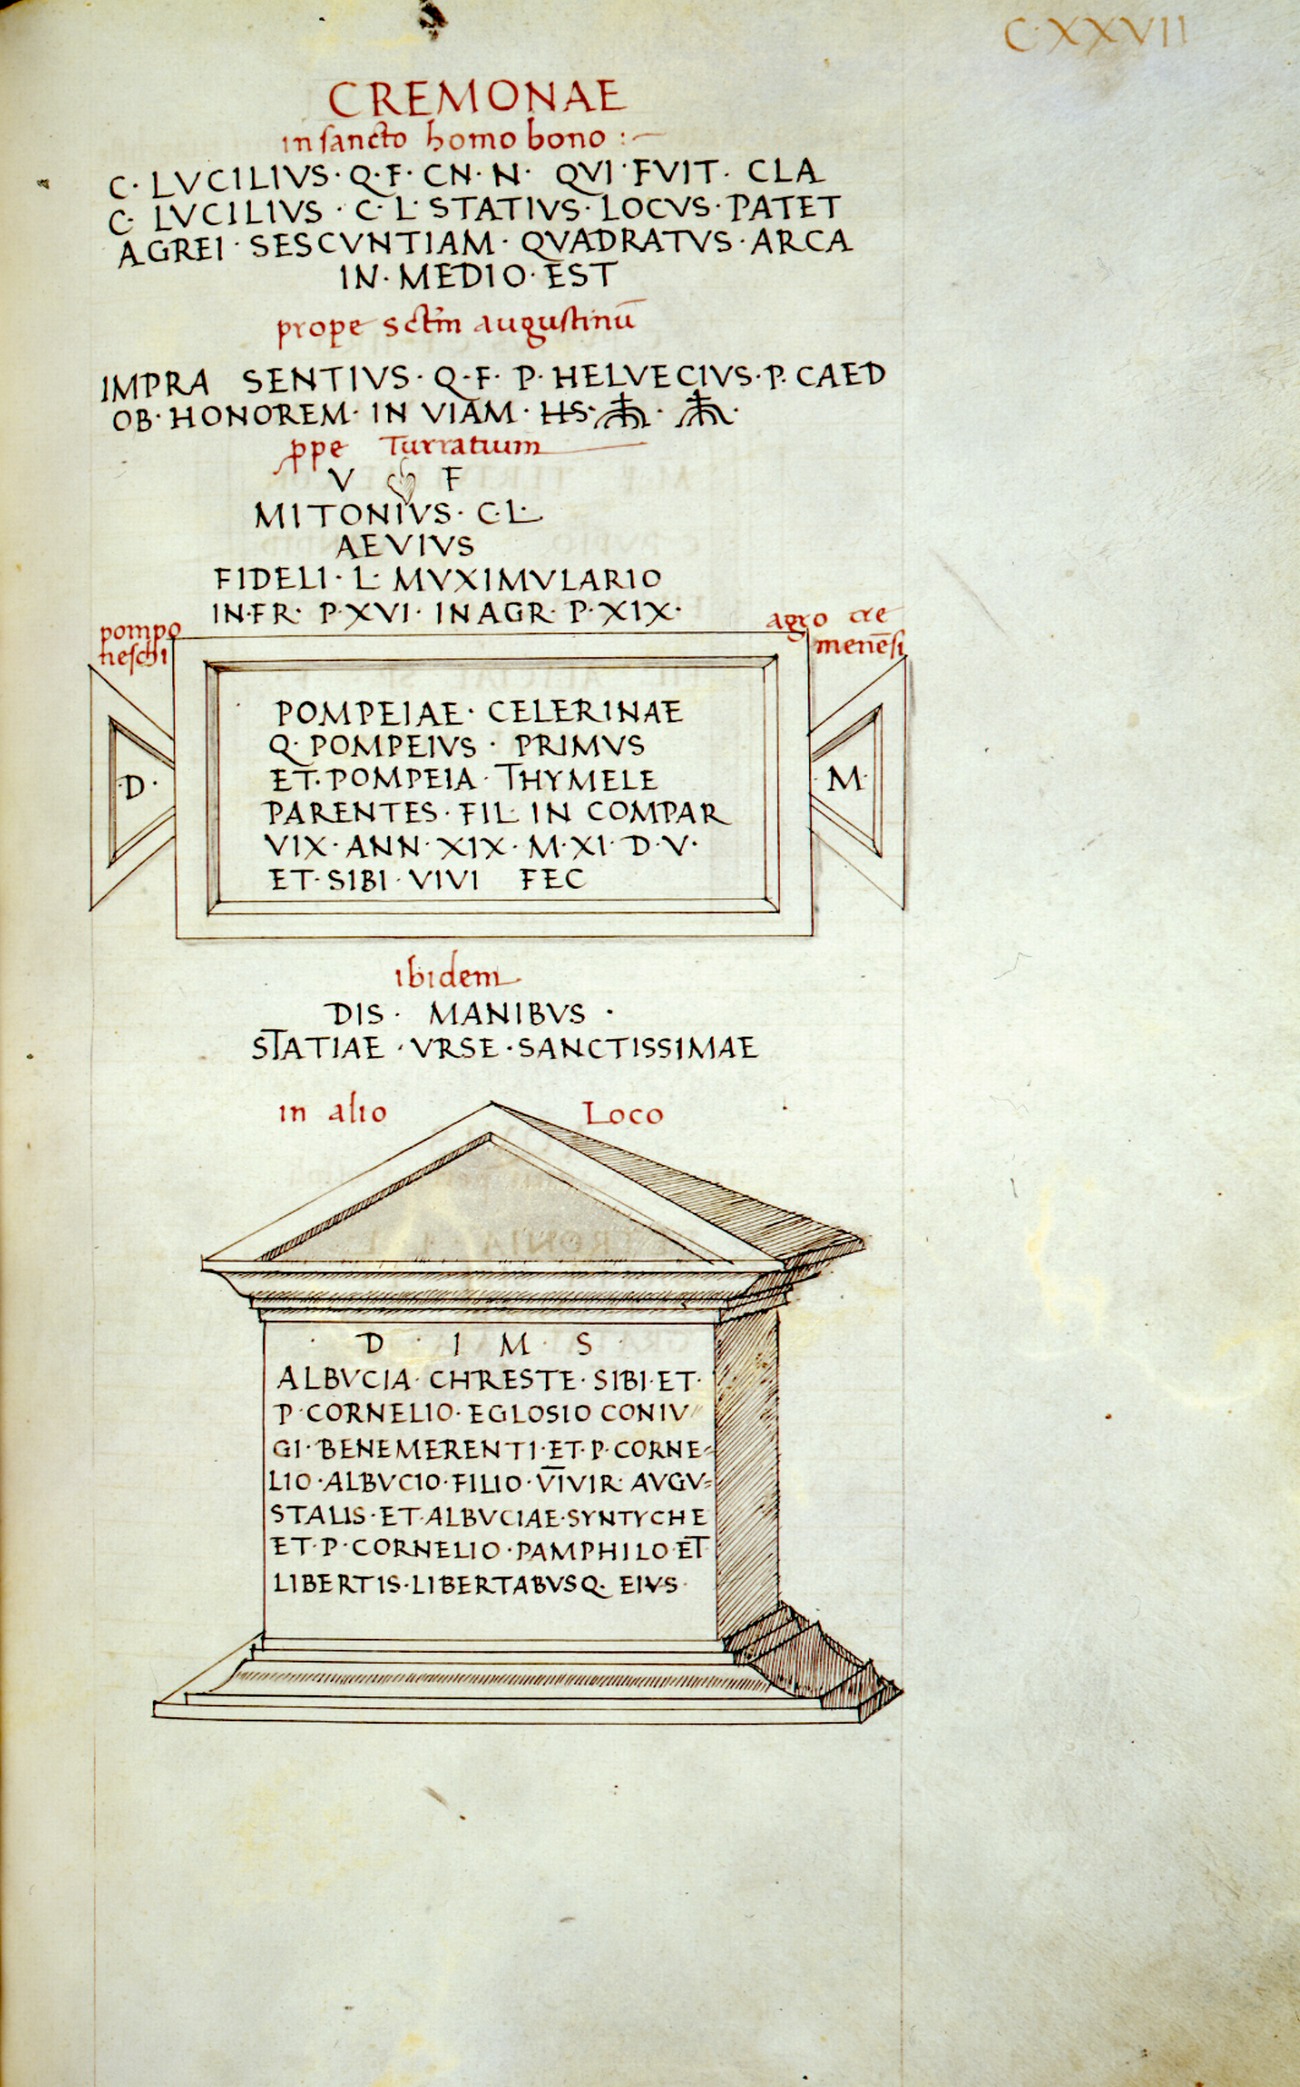 C·XXVII
CREMONAE
in sancto homo bono :
C· LVCILIVS· Q·F· CN· N· QVI·FVIT· CLA
C· LVCILIVS · C· L· STATIVS· LOCVS· PATET
AGREI · SESCVNTIAM · QVADRATVS· ARCA
IN· MEDIO· EST
prope sctm̄ augustinū
IMPRA SENTIVS· Q·F· P· HELVECIVS·P· CAED
OB· HONOREM· IN VIAM· HS·
ppe Turratium
V F
MITONIVS· C·L·
AEVIVS
FIDELI· L· MVXIMVLARIO
IN·FR· P·XVI· IN AGR· P·XIX·
pompo
neschi
agro cre
menēsi
·D·
POMPEIAE· CELERINAE
Q· POMPEIVS · PRIMVS
ET·POMPEIA· THYMELE
PARENTES· FIL· IN COMPAR
VIX· ANN· XIX· M·XI· D·V·
ET· SIBI· VIVI FEC
·M·
ibidem
DIS· MANIBVS ·
STATIAE ·VRSE·SANCTISSIMAE
in alio Loco
· D · I M · S ·
ALBVCIA· CHRESTE· SIBI·ET·
P·CORNELIO· EGLOSIO CONIV
GI· BENEMERENTI·ET·P·CORNE-
LIO·ALBVCIO·FILIO·V̅I̅VIR· AVGV-
STALIS·ET·ALBVCIAE·SYNTYCHE
ET·P·CORNELIO·PAMPHILO·ET
LIBERTIS·LIBERTABVSQ· EIVS·